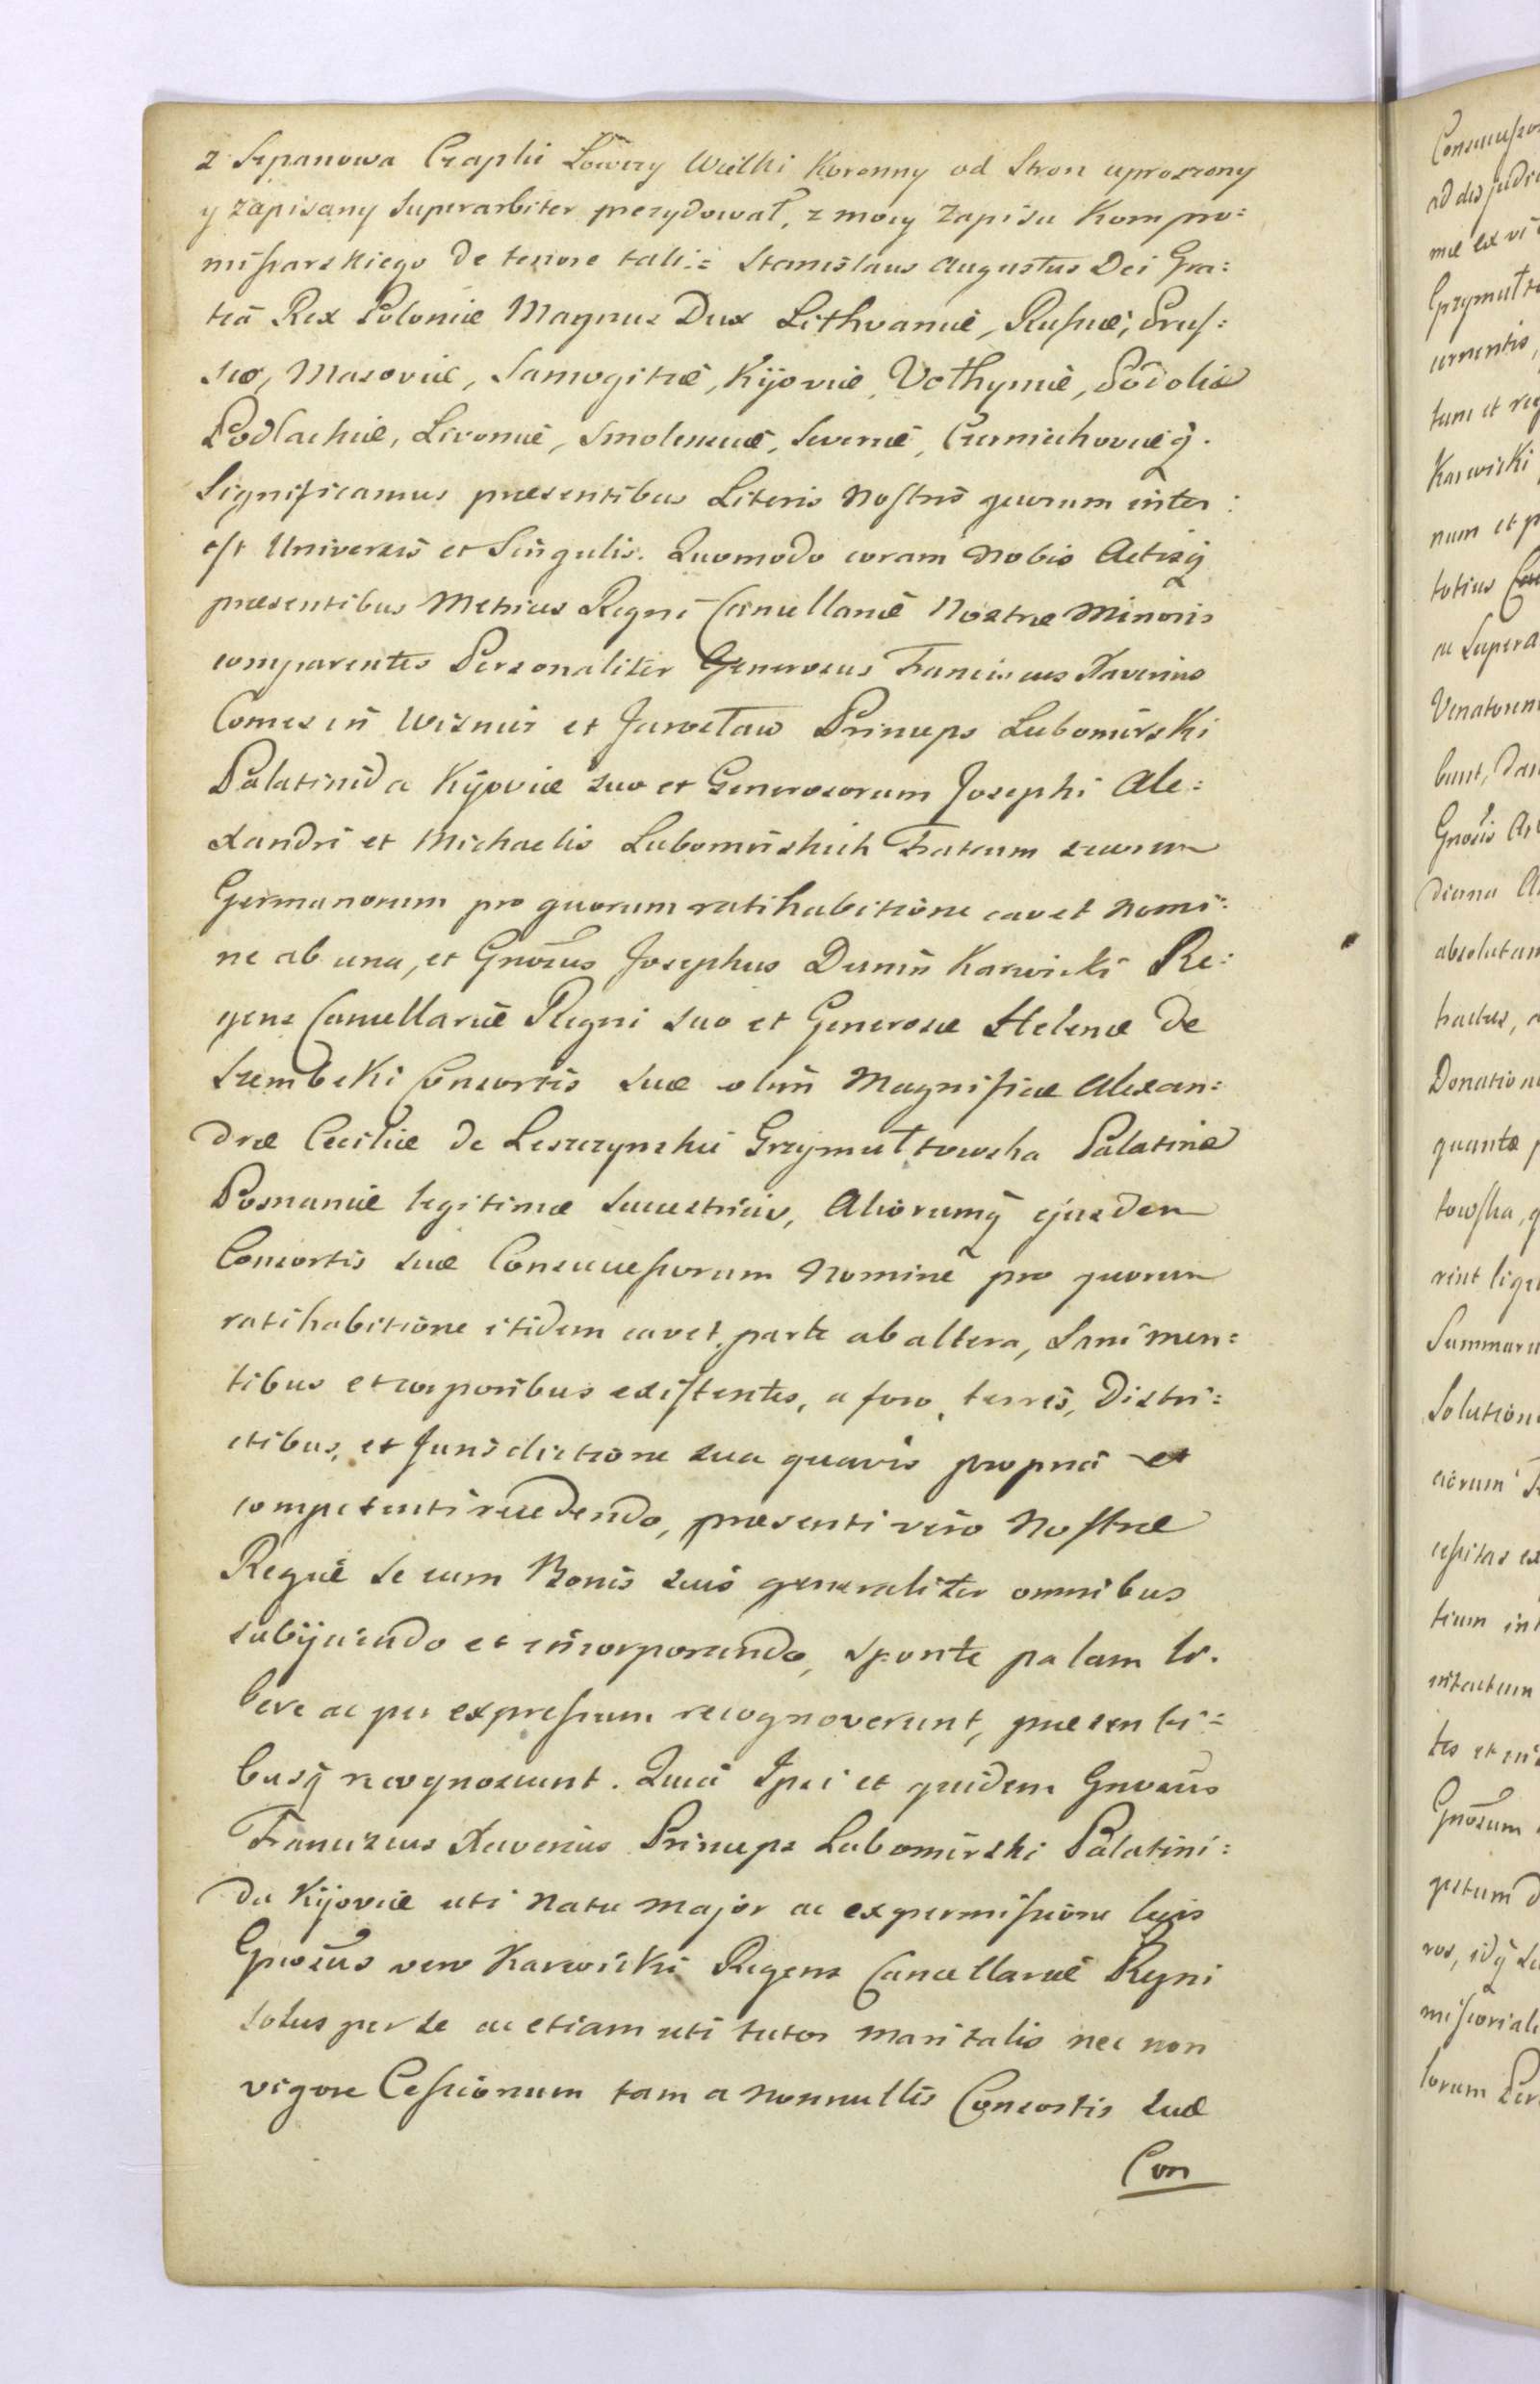 z Szpanowa Czaplic Łowczy Wielki Koronny od Stron uproszony
y zapisany Superarbiter prezydował, z mocy Zapisu Kompro=
missarskiego de tenore tali:= Stanislaus Augustus Dei Gra=
tiâ Rex Poloniæ Magnus Dux Lithvaniæ, Russiæ, Prus=
siæ, Masoviæ, Samogitiæ, Kijoviæ, Volhyniæ, Podoliæ
Podlachiæ, Livoniæ, Smolensciæ, Severiæ, Czerniechoviæq.
Significamus præsentibus Literis Nostris quorum inter:
est Universis et Singulis. Quomodo coram Nobis Actisq
præsentibus Metrices Regni Cancellariæ Nostræ Minoris
comparentes Personaliter Generosus Franciscus Xaverius
Comes in Wisnicz et Jarosław Princeps Lubomirski
Palatinida Kijoviæ suo et Generosorum Josephi Ale=
xandri et Michaelis Lubomirskich Fratrum suorum
Germanorum pro quorum ratihabitione cavet nomi=
ne ab una, et Gnosus Josephus Dunin Karwicki Re=
gens Cancellariæ Regni suo et Generosæ Helenæ de
Szembeki Consortis suæ olim Magnificæ Alexan=
dræ Ceciliæ de Leszczynskie Grzymułtowska Palatinæ
Posnaniæ legitimæ Succestricis, Aliorumq ejusdem
Consortis suæ Consuccessorum Nomine pro quorum
ratihabitione itidem cavet parte ab altera, Sani men=
tibus et corporibus existentes, a foro, terris, Distri=
ctibus, et Jurisdictione sua quavis propriâ et
competenti recedendo, præsenti vero Nostræ
Regiæ se cum Bonis suis generaliter omnibus
subijciendo et incorporando, sponte palam li=
bere ac per expressum recognoverunt, præsenti=
busq recognoscunt. Quia Ipsi et quidem Gnosus
Franciscus Xaverius Princeps Lubomirski Palatini=
da Kijoviæ uti Natu Major ac ex permissione legis
Gnosus vero Karwicki Regens Cancellariæ Regni
solus per se ac etiam uti tutor maritalis nec non
vigore Cessionum tam a Nonnullis Consortis suæ
Con
Consuccesso
ad des judi
mæ ex vi
Grzymułto
tum et re
Karwicki
num et p
totius
ac Supera
Venatorem
bunt, dan
Gnosis
diana
absolutam
tractus, a
Donatione
quanta p
towska, q
rint lig
Summaru
Solution
tium int
intactum
tes et in
Gnosum
ros, idq
missorial
lorum Per